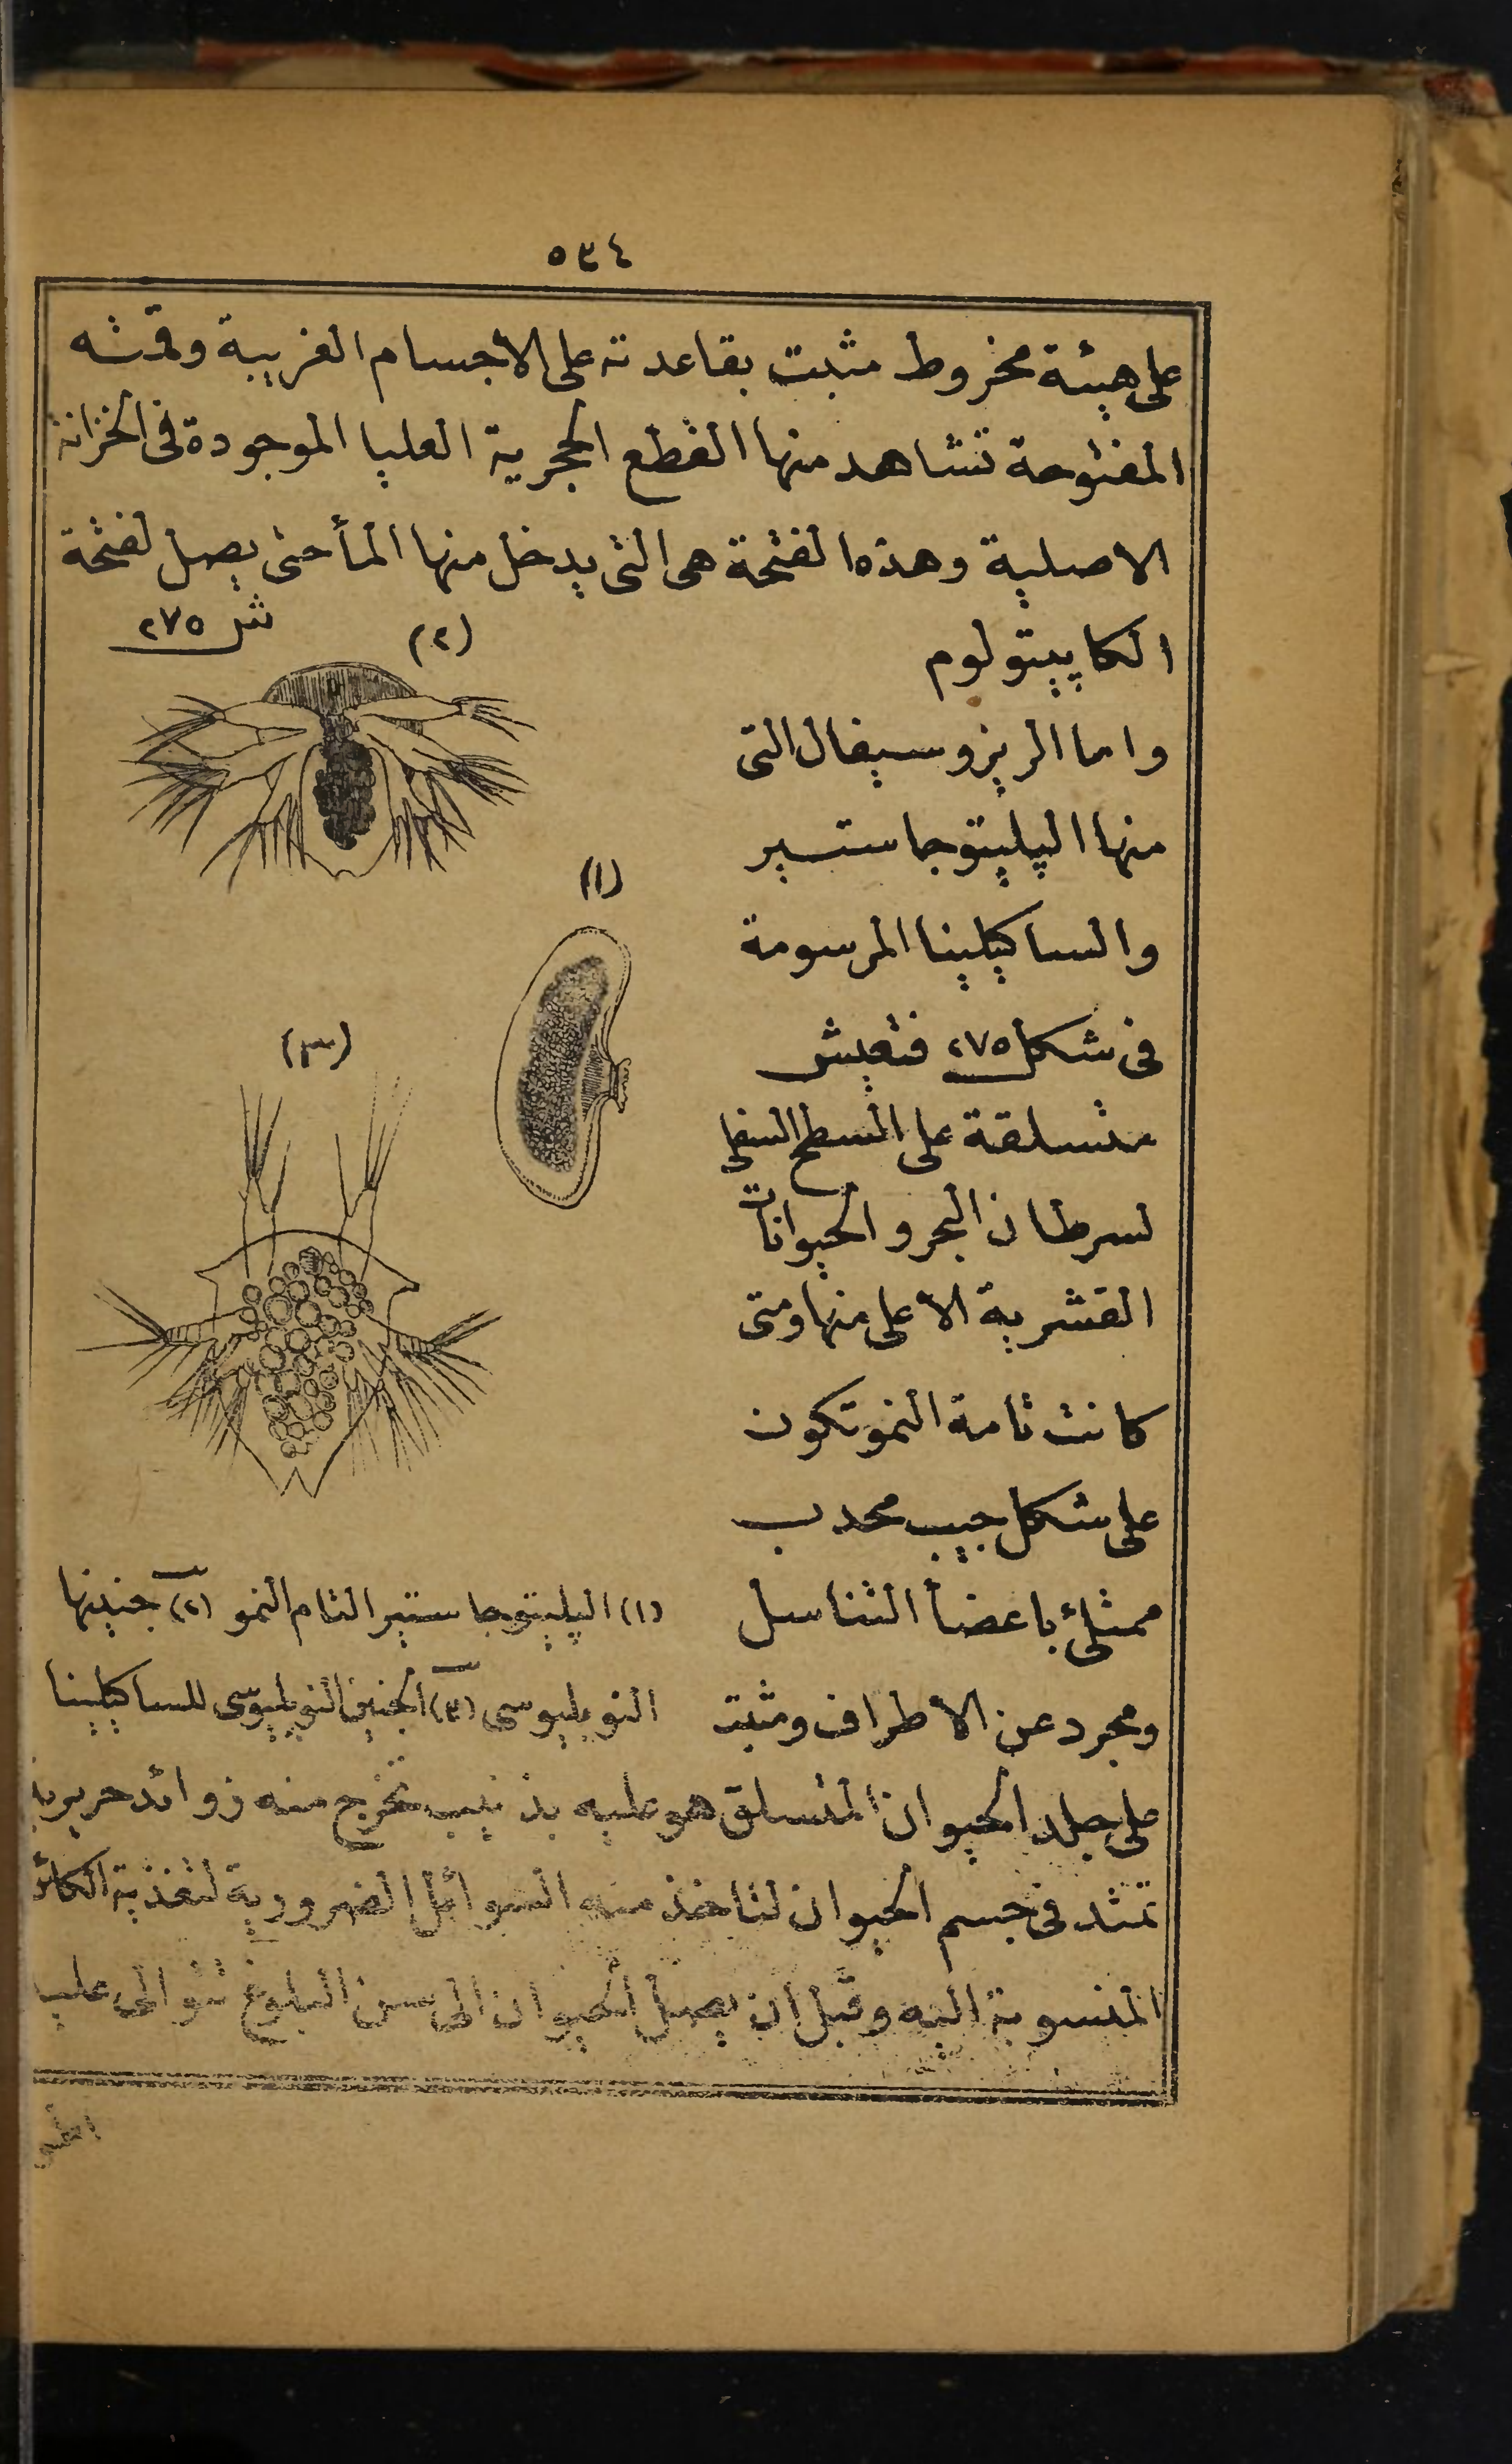 ٥٣٤
على هيئة مخروط مثبت بقاعدته على الاجسام الغريبة وقمته
المفتوحة تشاهد منها القطع الحجرية العليا الموجودة فى الخزانة
الاصلية وهذه الفتحة هى التى يدخل منها المأ حتى يصل لفتحة
الكاپيتولوم
واما الريزوسيفال التى
منها الپليتوجاستير
والساكيلينا المرسومة
فى شكل ٢٧٥ فتعيش
متسلقة على السطح السفلى
لسرطان البحر والحيوانات
القشرية الأعلى منها ومتى
كانت تامة النمو تكون
على شكل جيب محدب
ممتلئ باعضأ التناسل
ومجرد عن الاطراف ومثبت
شكل ٢٧٥
(٢)
(١)
(٣)
(١) الپليتوجاستير التام النمو (٢) جنينها
النوپليوسى (٣) الجنين النوپليوسى للساكيلينا
على جلد الحيوان المتسلق هو عليه بذنيب تخرج منه زوائد حريرية
تمتد فى جسم الحيوان لتاخذ منه السوائل الضرورية لتغذية الكائن
المنسوبة اليه وقبل ان يصل الحيوان الى سن البلوغ تتوالى عليه